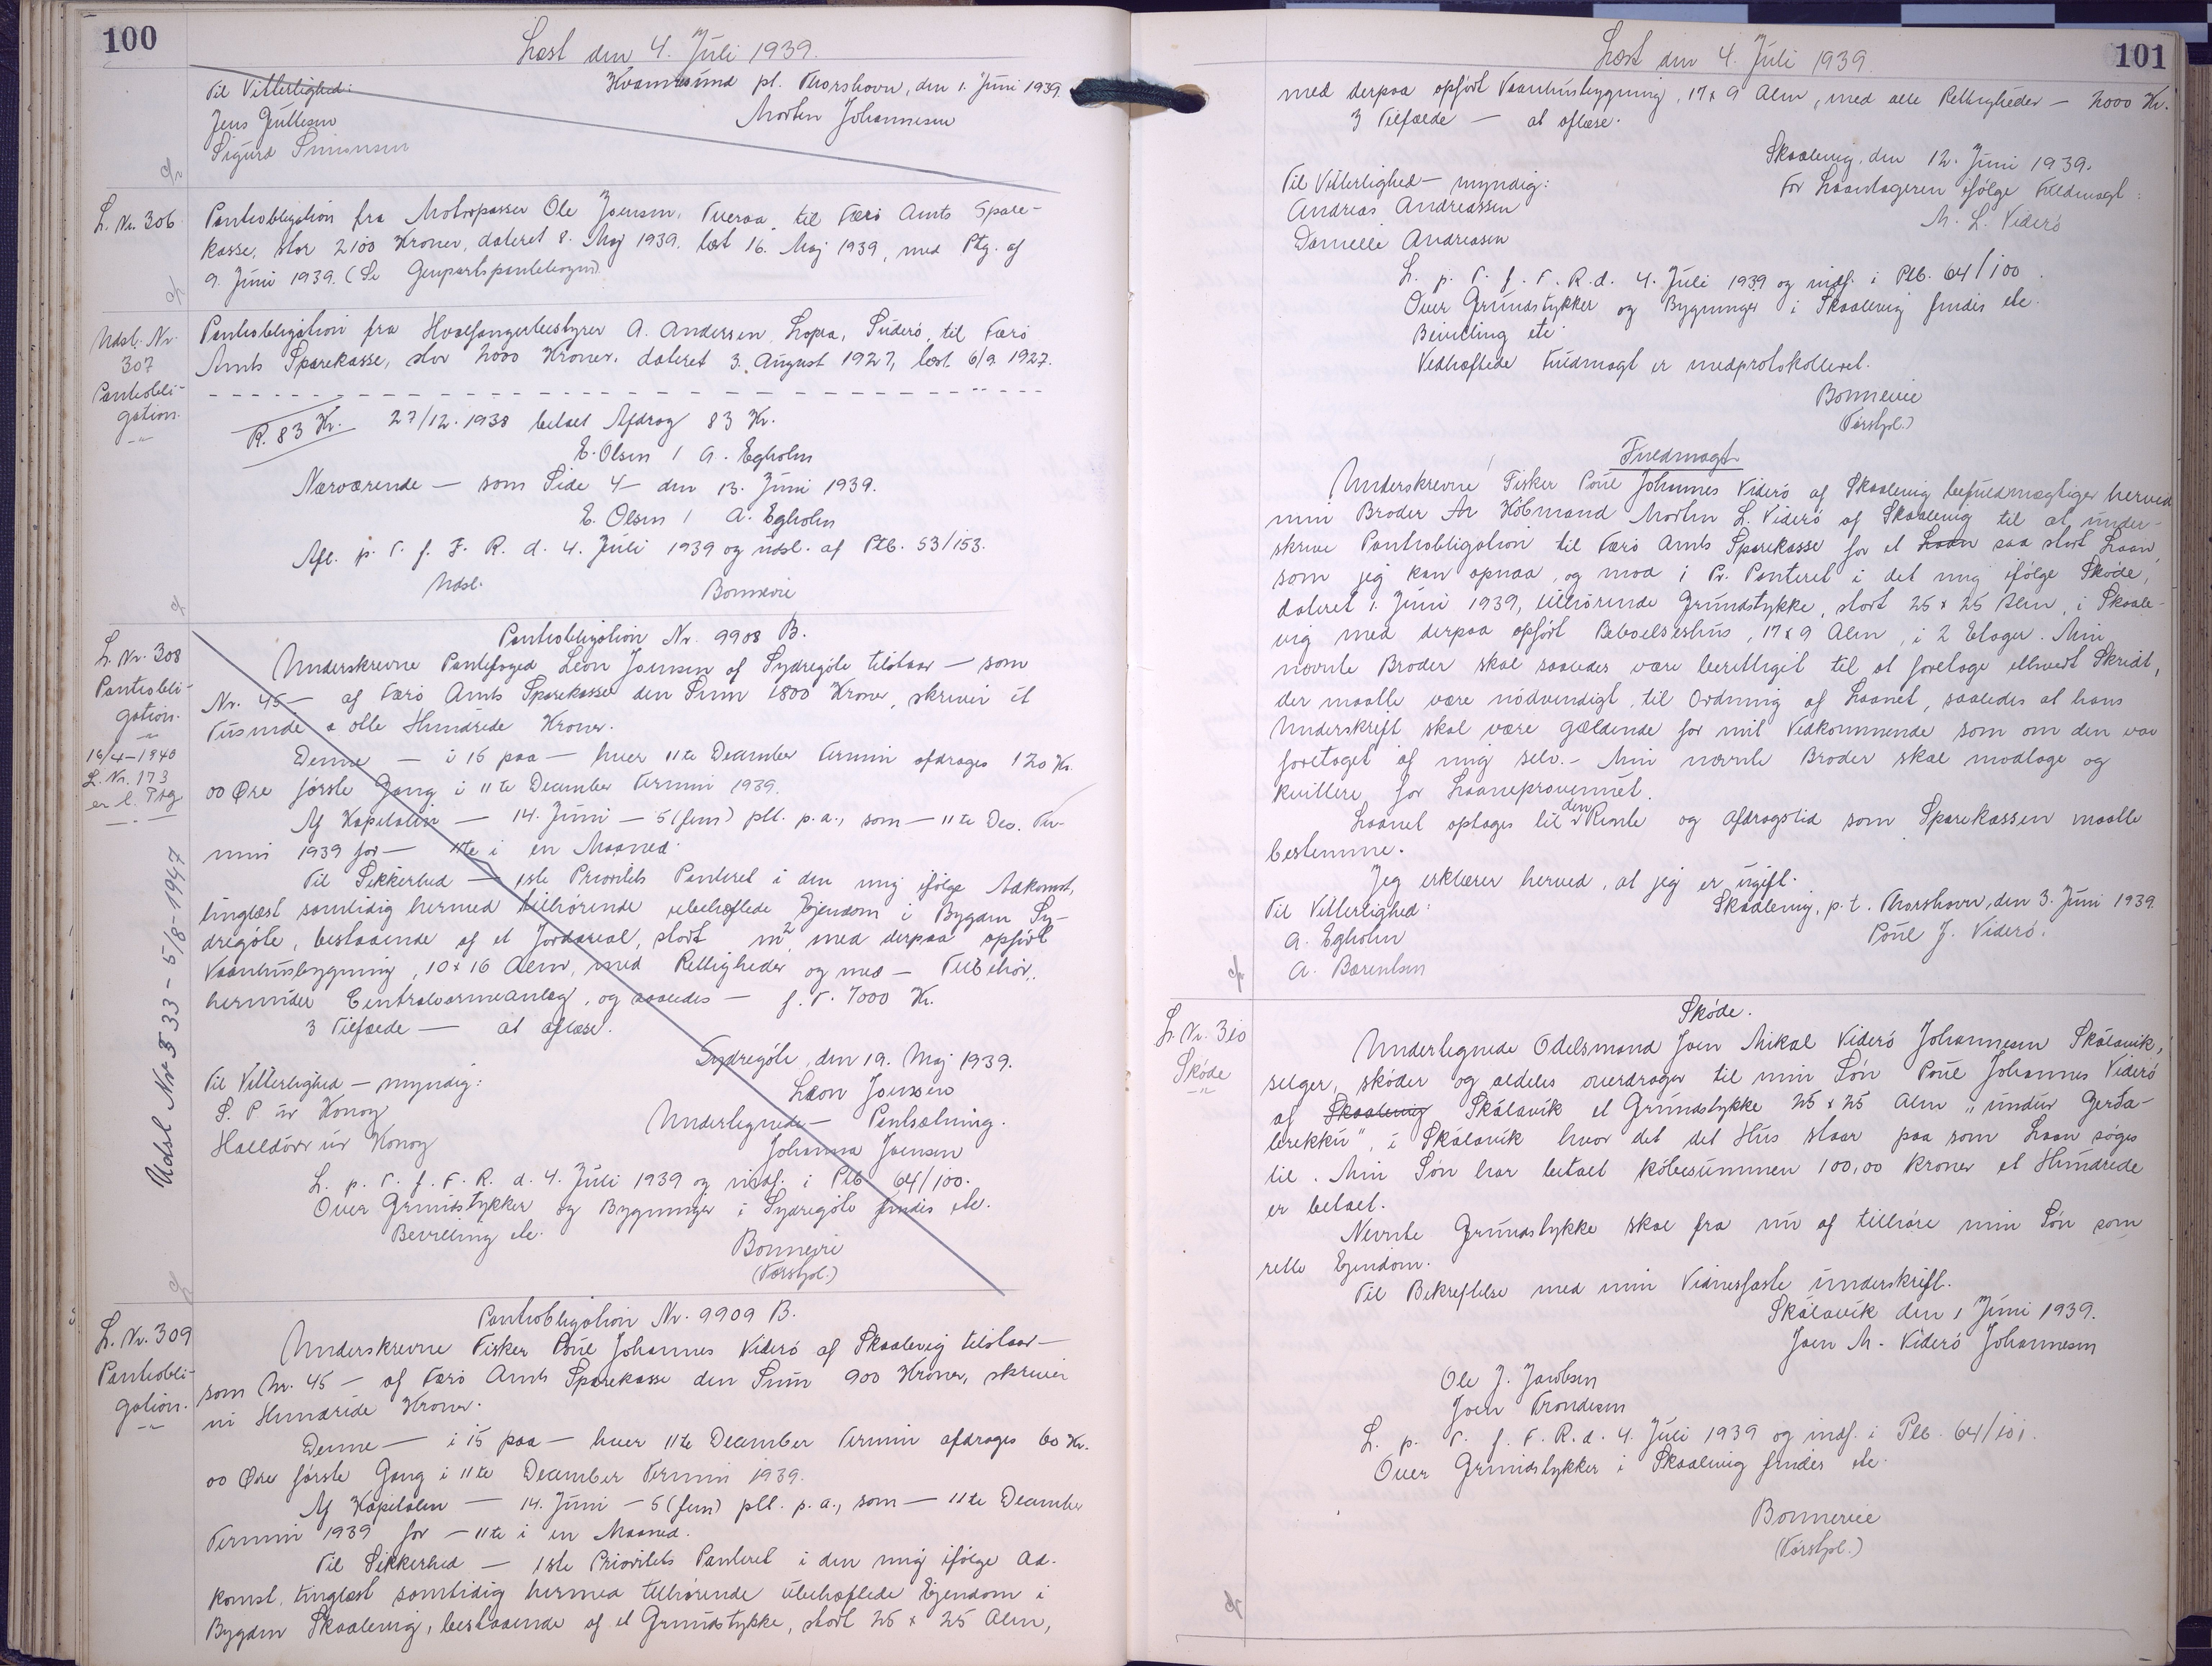 100
Læst den 4. Juli 1939.
Til Vitterlighed:
Kvannasund pt. Thorshavn, den 1. Juni 1939.
Jens Gullesen
Morten Johannesen
Sigurd Simonsen
L. Nr. 306
Pantobligation fra Motorpasser Ole Joensen, Tveraa, til Færö Amts Spare-
kasse, stor 2100 Kroner, dateret 8. Maj 1939. læst 16. Maj 1939, med Ptg. af
9. Juni 1939. (Se Genpartspantebogen)
Udsl. Nr.
307
Pantobli-
gation.
Pantobligation fra Hvalfangerbestyrer A. Andersen, Lopra, Suderö, til Færö
Amts Sparekasse, stor 2000 Kroner, dateret 3. August 1927, læst 6/9 1927.
R. 83 Kr. 27/12. 1938 betalt Afdrag 83 Kr.
E. Olsen / A. Egholm
Nærværende — som Side 4 — den 13. Juni 1939.
E. Olsen / A. Egholm
Afl. p. T. f. F. R. d. 4. Juli 1939 og udsl. af Ptb. 53/153.
Udsl. Bonnevie
L. Nr. 308
Pantobli-
gation.
16/4-1940
L. Nr. 173
er l. Ptg
Udsl Nr 533 - 5/8-1947
Pantobligation Nr. 9908 B.
Underskrevne Pantefoged Leon Joensen af Sydregöte tilstaar — som
Nr. 45 — af Færö Amts Sparekasse den Sum 1800 Kroner, skriver et
Tusinde & otte Hundrede Kroner.
Denne — i 15 paa — hver 11te December Termin afdrages 120 Kr.
00 Øre förste Gang i 11te December Termin 1939.
Af Kapitalen — 14. Juni — 5 (fem) pCt. p.a., som — 11te Dec. Ter-
min 1939 for — 11te i en Maaned.
Til Sikkerhed — 1ste Prioritets Panteret i den mig ifölge Adkomst,
tinglæst samtidig hermed tilhörende ubehæftede Ejendom i Bygden Sy-
dregöte, bestaaende af et Jordareal, stort m², med derpaa opfört
Vaaningsbygning, 10 x 16 Alen, med Rettigheder og med — Tilbehör,
herunder Centralvarmeanlæg, og saaledes — f. T. 7000 Kr.
3 Tilfælde — at aflæse.
Sydregöte, den 19. Maj 1939.
Til Vitterlighed — myndig:
Leon Joensen
S. P. úr Konoy
Underlegnede — Pantsætning.
Halldórr úr Konoy
Johanna Joensen
L. p. T. f. F. R. d. 4. Juli 1939 og indf. i Ptb 64/100.
Over Grundstykker og Bygninger i Sydregöte findes ete.
Bevilling ete.
Bonnevie
(Forstpl.)
L. Nr. 309
Pantobli-
gation.
Pantobligation Nr. 9909 B.
Underskrevne Fisker Poul Johannes Viderö af Skaalevig tilstaar —
som Nr. 45 — af Færö Amts Sparekasse den Sum 900 Kroner, skriver
ni Hundrede Kroner.
Denne — i 15 paa — hver 11te December Termin afdrages 60 Kr.
00 Øre förste Gang i 11te December Termin 1939.
Af Kapitalen — 14. Juni — 5 (fem) pCt. p.a., som — 11te December
Termin 1939 for — 11te i en Maaned.
Til Sikkerhed — 1ste Prioritets Panteret i den mig ifölge Ad-
komst, tinglæst samtidig hermed tilhörende ubehæftede Ejendom i
Bygden Skaalevig, bestaaende af et Grundstykke, stort 25 x 25 Alen,
101
Læst den 4. Juli 1939.
med derpaa opfört Vaaningsbygning, 17 x 9 Alen, med alle Rettigheder — 2000 Kr.
3 Tilfælde — at aflæse.
Skaalevig, den 12. Juni 1939.
Til Vitterlighed — myndig:
For Laantageren ifölge Fuldmagt:
Andreas Andreassen
M. L. Viderö
Danielle Andreasen
L. p. T. f. F. R. d. 4. Juli 1939 og indf. i Ptb. 64/100.
Over Grundstykker og Bygninger i Skaalevig findes ete.
Bevilling ete
Vedhæftede Fuldmagt er medprotokolleret.
Bonnevie
(Forstpl.)
Fuldmagt
Underskrevne Fisker Poul Johannes Viderö af Skaalevig befuldmægtiger herved
min Broder Hr Köbmand Morten L. Viderö af Skaalevig til at under-
skrive Pantobligation til Færö Amts Sparekasse for et Laan saa stort Laan,
som jeg kan opnaa, og mod 1 Pr. Panteret i det mig ifölge Sköde,
dateret 1. Juni 1939, tilhörende Grundstykke, stort 25 x 25 Alen, i Skaale-
vig med derpaa opfört Beboelseshus, 17 x 9 Alen, i 2 Etager. Min
nævnte Broder skal saaledes være berettiget til at foretage ethvert Skridt,
der maatte være nödvendigt til Ordning af Laanet, saaledes at hans
Underskrift skal være gældende for mit Vedkommende som om den var
foretaget af mig selv. — Min nævnte Broder skal modtage og
kvittere for Laaneprovenuet.
Laanet optages til den Rente og Afdragstid som Sparekassen maatte
bestemme.
Jeg erklærer herved, at jeg er ugift.
Til Vitterlighed:
Skaalevig, p. t. Thorshavn, den 3. Juni 1939.
A. Egholm
Poul J. Viderö.
A. Bærentsen
L. Nr. 310
Sköde
Sköde.
Underlegnede Odelsmand Joen Mikal Viderö Johannesen Skálavík,
selger, sköder og aldeles overdrager til min Sön Poul Johannes Viderö
af Skaalevig Skálavík et Grundstykke 25 x 25 Alen "undur Gerða-
brekku", i Skálavík hvor det det Hus staar paa som Laan söges
til. Min Sön har betalt köbesummen 100,00 Kroner et Hundrede
er betalt.
Nevnte Grundstykke skal fra nu af tilhöre min Sön som
rette Ejendom.
Til Bekreftelse med min Vidnesfaste underskrift.
Skálavík den 1 Juni 1939.
Joen M. Viderö Johannesen
Ole J. Jacobsen
Joen Trondesen
L. p. T. f. F. R. d. 4. Juli 1939 og indf. i Ptb. 64/101.
Over Grundstykker i Skaalevig findes ete.
Bonnevie
(Forstpl.)